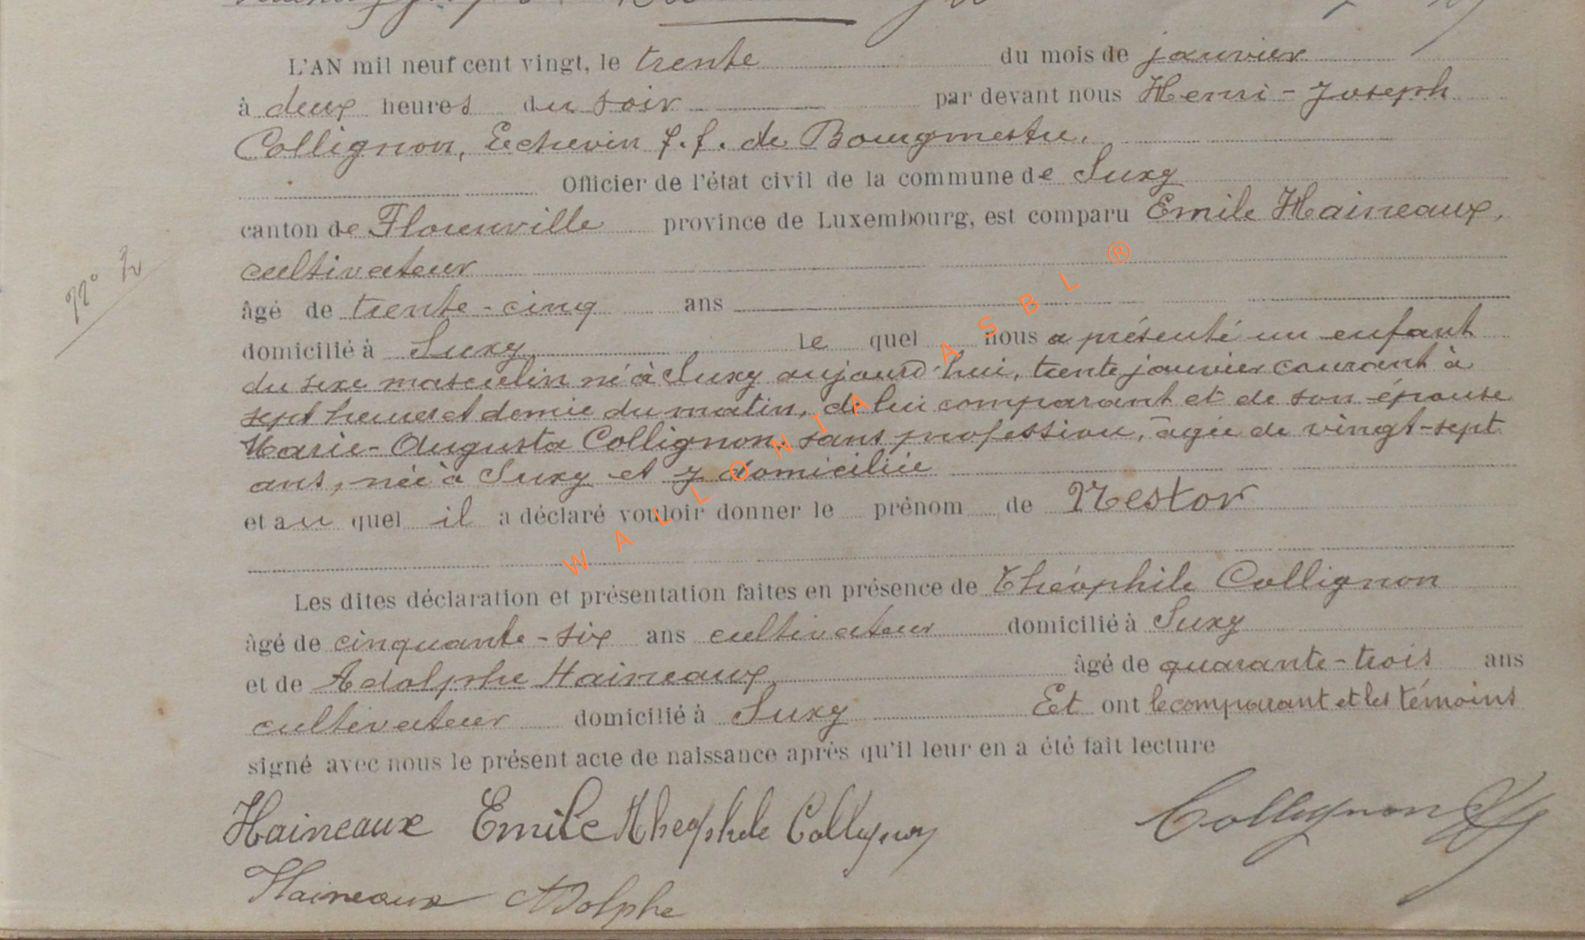 L'AN mil neuf cent vingt, le trente du mois de janvier
à deux heures du soir par devant nous Henri-Joseph
Collignon, Echevin f.f. de Bourgmestre.
Officier de l'état civil de la commune de Suxy
canton de Florenville province de Luxembourg, est comparu Emile Haineaux,
cultivateur
âgé de trente-cinq ans
domicilié à Suxy Le quel nous a présenté un enfant
du sexe masculin né à Suxy aujourd'hui, trente janvier courant à
sept heures et demie du matin, de lui comparant et de son épouse
Marie-Augusta Collignon, sans profession, âgée de vingt-sept
ans, née à Suxy et y domiciliée
et au quel il a déclaré vouloir donner le prénom de Nestor
Les dites déclaration et présentation faites en présence de Théophile Collignon
âgé de cinquante-six ans cultivateur domicilié à Suxy
et de Adolphe Haineaux âgé de quarante-trois ans
cultivateur domicilié à Suxy Et ont le comparant et les témoins
signé avec nous le présent acte de naissance après qu'il leur en a été fait lecture
Haineaux Emile Théophile Collignon Collignon
Haineaux Adolphe
N° 2
WALLONIA ASBL ®